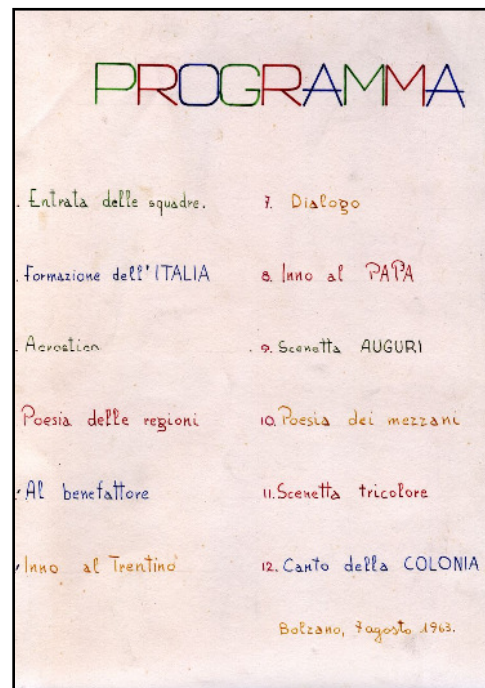 PROGRAMMA
. Entrata delle squadre.
. Formazione dell'ITALIA
. Acrostico
Poesia delle regioni
Al benefattore
Inno al Trentino
7. Dialogo
8. Inno al PAPA
9. Scenetta AUGURI
10. Poesia dei mezzani
11. Scenetta tricolore
12. Canto della COLONIA
Bolzano, 7 agosto 1963.